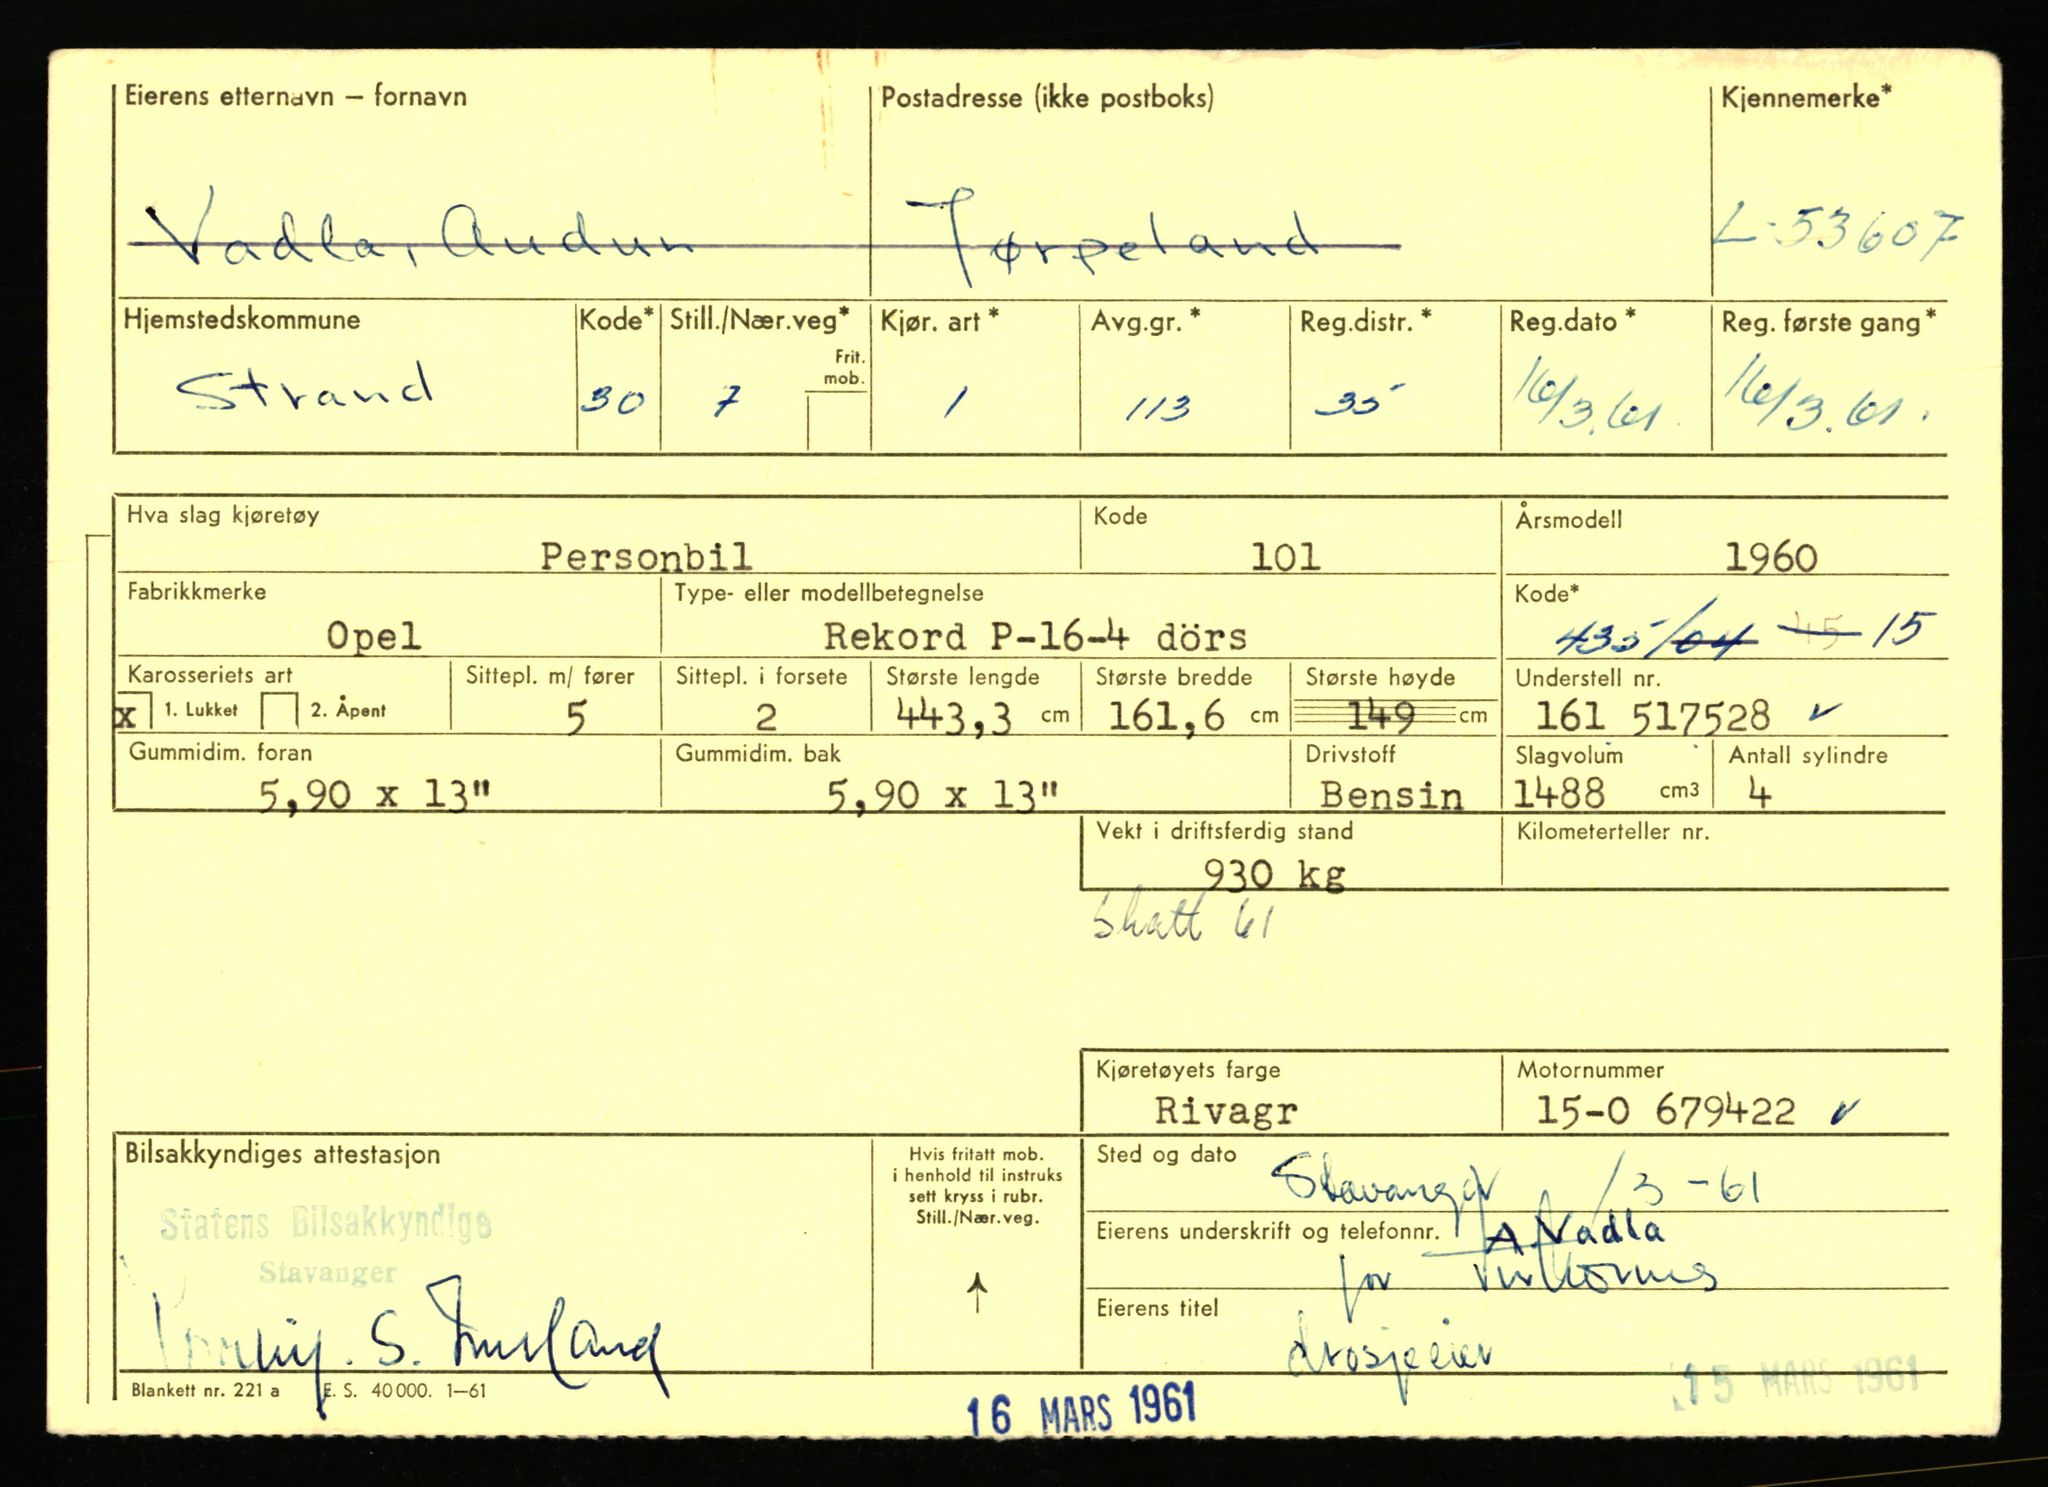 Eierens etternavn – fornavn Postadresse (ikke postboks) Kjennemerke*
Vadla, Audun Jørpeland L-53607
Hjemstedskommune Kode* Still./Nær.veg* Kjør. art* Avg.gr.* Reg.distr.* Reg.dato* Reg. første gang*
Frit. mob.
Strand 30 7 1 113 35 16/3.61. 16/3.61.
Hva slag kjøretøy Kode Årsmodell
Personbil 101 1960
Fabrikkmerke Type- eller modellbetegnelse Kode*
Opel Rekord P-16-4 dörs 435/04 45 15
Karosseriets art Sittepl. m/ fører Sittepl. i forsete Største lengde Største bredde Største høyde Understell nr.
x 1. Lukket 2. Åpent 5 2 443,3 cm 161,6 cm 149 cm 161 517528 ✓
Gummidim. foran Gummidim. bak Drivstoff Slagvolum Antall sylindre
5,90 x 13" 5,90 x 13" Bensin 1488 cm3 4
Vekt i driftsferdig stand Kilometerteller nr.
930 kg
Skatt 61
Kjøretøyets farge Motornummer
Rivagr 15-0 679422 ✓
Bilsakkyndiges attestasjon
Statens Bilsakkyndige
Stavanger
Hvis fritatt mob.
i henhold til instruks
sett kryss i rubr.
Still./Nær.veg.
↑
Sted og dato Stavanger /3-61
Eierens underskrift og telefonnr. A. Vadla
for
Eierens titel
drosjeeier
Blankett nr. 221 a E. S. 40 000. 1–61
15 MARS 1961
16 MARS 1961